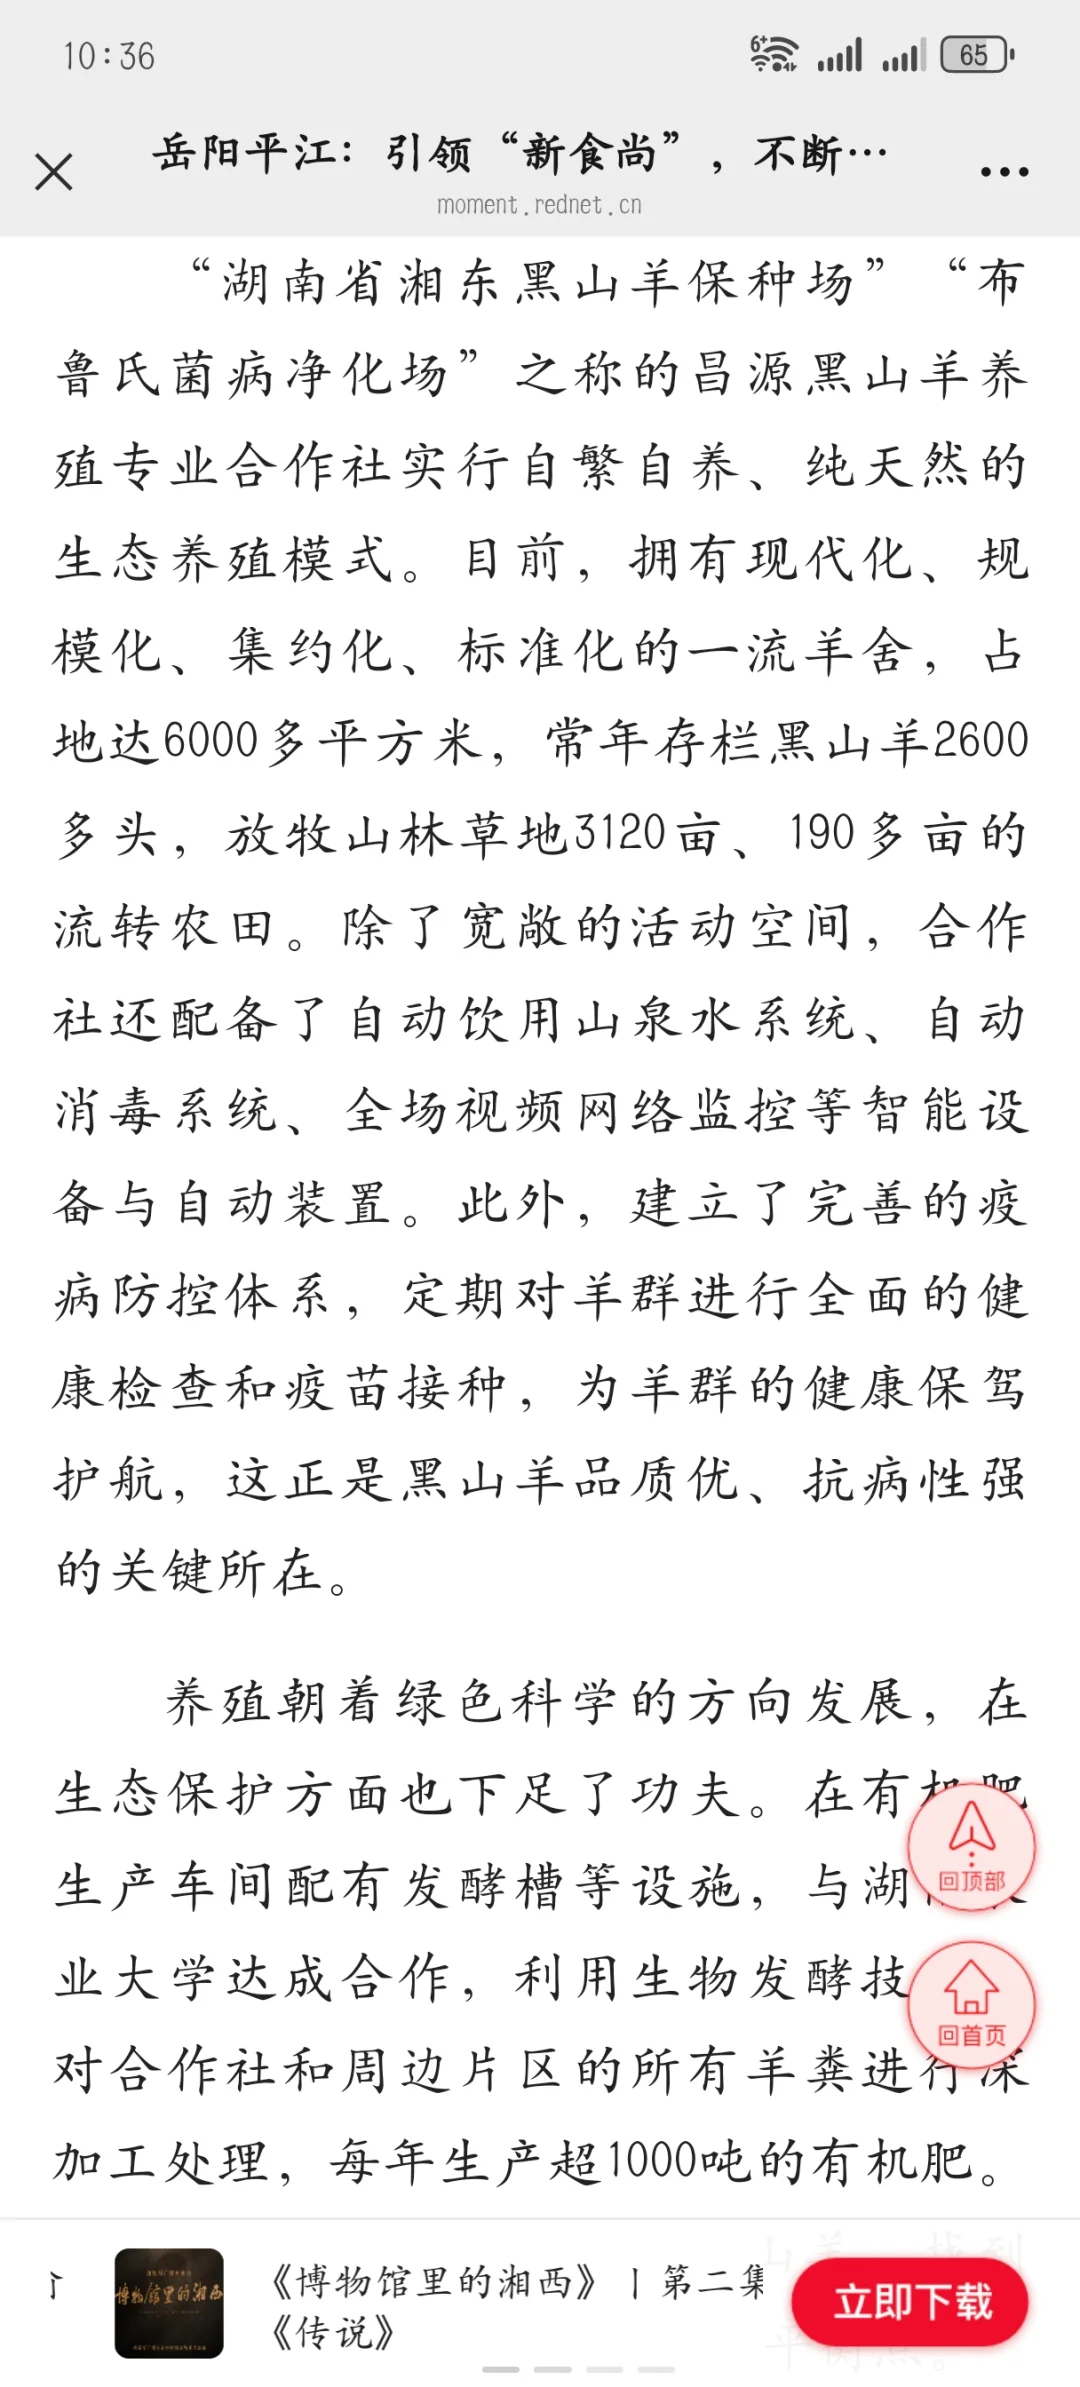 10:36
65
岳阳平江：引领“新食尚”，不断…
moment.rednet.cn
“湖南省湘东黑山羊保种场”“布
鲁氏菌病净化场”之称的昌源黑山羊养
殖专业合作社实行自繁自养、纯天然的
生态养殖模式。目前，拥有现代化、规
模化、集约化、标准化的一流羊舍，占
地达6000多平方米，常年存栏黑山羊2600
多头，放牧山林草地3120亩、190多亩的
流转农田。除了宽敞的活动空间，合作
社还配备了自动饮用山泉水系统、自动
消毒系统、全场视频网络监控等智能设
备与自动装置。此外，建立了完善的疫
病防控体系，定期对羊群进行全面的健
康检查和疫苗接种，为羊群的健康保驾
护航，这正是黑山羊品质优、抗病性强
的关键所在。
养殖朝着绿色科学的方向发展，在
生态保护方面也下足了功夫。在有机肥
生产车间配有发酵槽等设施，与湖
业大学达成合作，利用生物发酵技
对合作社和周边片区的所有羊粪进行深
加工处理，每年生产超1000吨的有机肥。
回顶部
回首页
博物馆里的湘西
《博物馆里的湘西》丨第二集
《传说》
立即下载